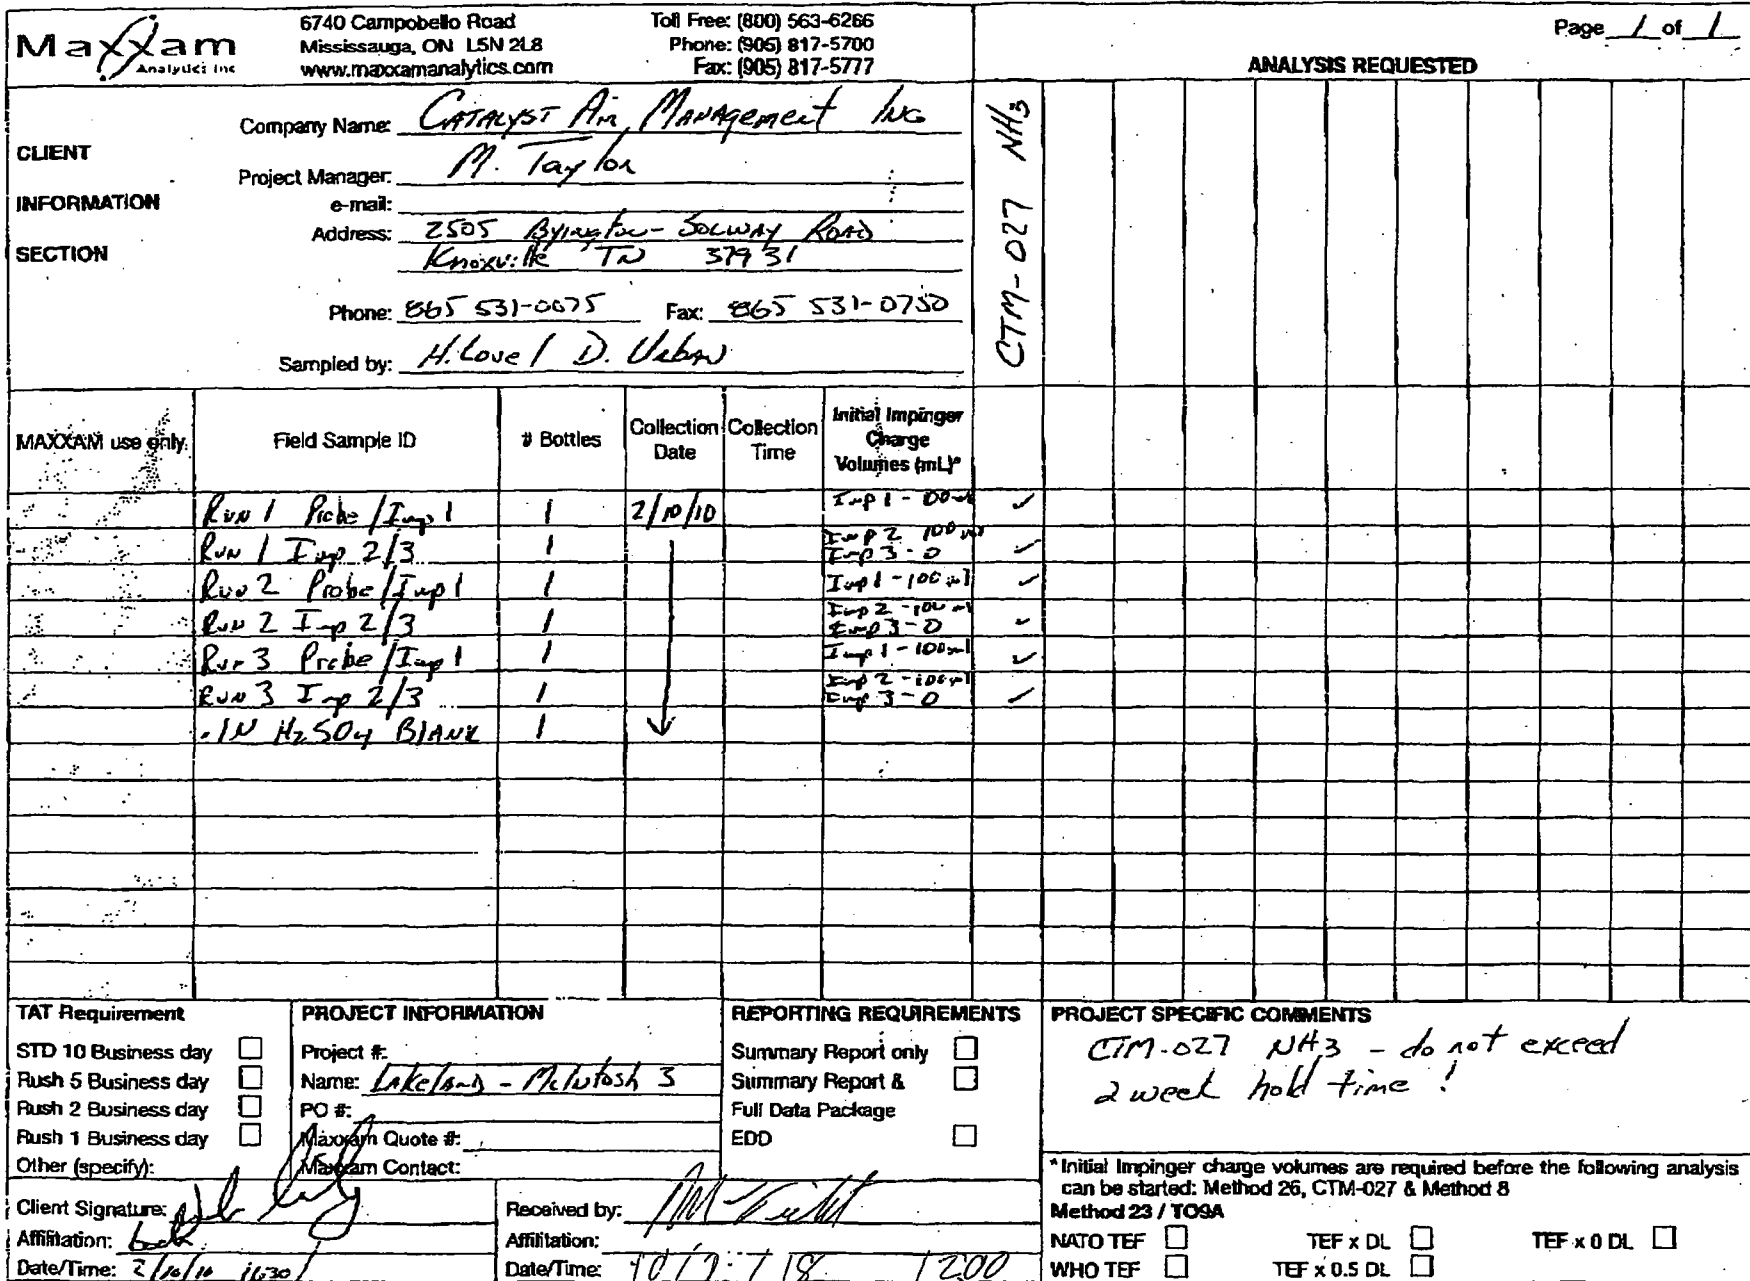 Maxxam
Analytics Inc
6740 Campobello Road
Mississauga, ON L5N 2L8
www.maxxamanalytics.com
Toll Free: (800) 563-6266
Phone: (905) 817-5700
Fax: (905) 817-5777
Page 1 of 1
ANALYSIS REQUESTED
CLIENT
INFORMATION
SECTION
Company Name: CATALYST Air MANAgement INC
Project Manager: M. Taylor
e-mail:
Address: 2505 Byington-Solway ROAD
Knoxville TN 37931
Phone: 865 531-0075 Fax: 865 531-0750
Sampled by: H. Love / D. Urban
CTM-027 NH3
MAXXAM use only.
Field Sample ID
# Bottles
Collection Date
Collection Time
Initial Impinger Charge Volumes (mL)*
Run 1 Probe/Imp 1 1 2/10/10 Imp 1 - 100 ml ✓
Run 1 Imp 2/3 1 Imp 2 100 ml Imp 3-0 ✓
Run 2 Probe/Imp 1 1 Imp 1 - 100 ml ✓
Run 2 Imp 2/3 1 Imp 2 - 100 ml Imp 3-0 ✓
Run 3 Probe/Imp 1 1 Imp 1 - 100 ml ✓
Run 3 Imp 2/3 1 Imp 2 - 100 ml Imp 3-0 ✓
.1N H2SO4 BLANK 1
TAT Requirement
STD 10 Business day
Rush 5 Business day
Rush 2 Business day
Rush 1 Business day
Other (specify):
PROJECT INFORMATION
Project #:
Name: Lakeland - McIntosh 3
PO #:
Maxxam Quote #:
Maxxam Contact:
REPORTING REQUIREMENTS
Summary Report only
Summary Report &
Full Data Package
EDD
PROJECT SPECIFIC COMMENTS
CTM-027 NH3 - do not exceed
2 week hold time !
*Initial Impinger charge volumes are required before the following analysis
can be started: Method 26, CTM-027 & Method 8
Method 23 / TO9A
NATO TEF TEF x DL TEF x 0 DL
WHO TEF TEF x 0.5 DL
Client Signature:
Affilitation:
Date/Time: 2/10/10
Received by:
Affilitation:
Date/Time: 12:00